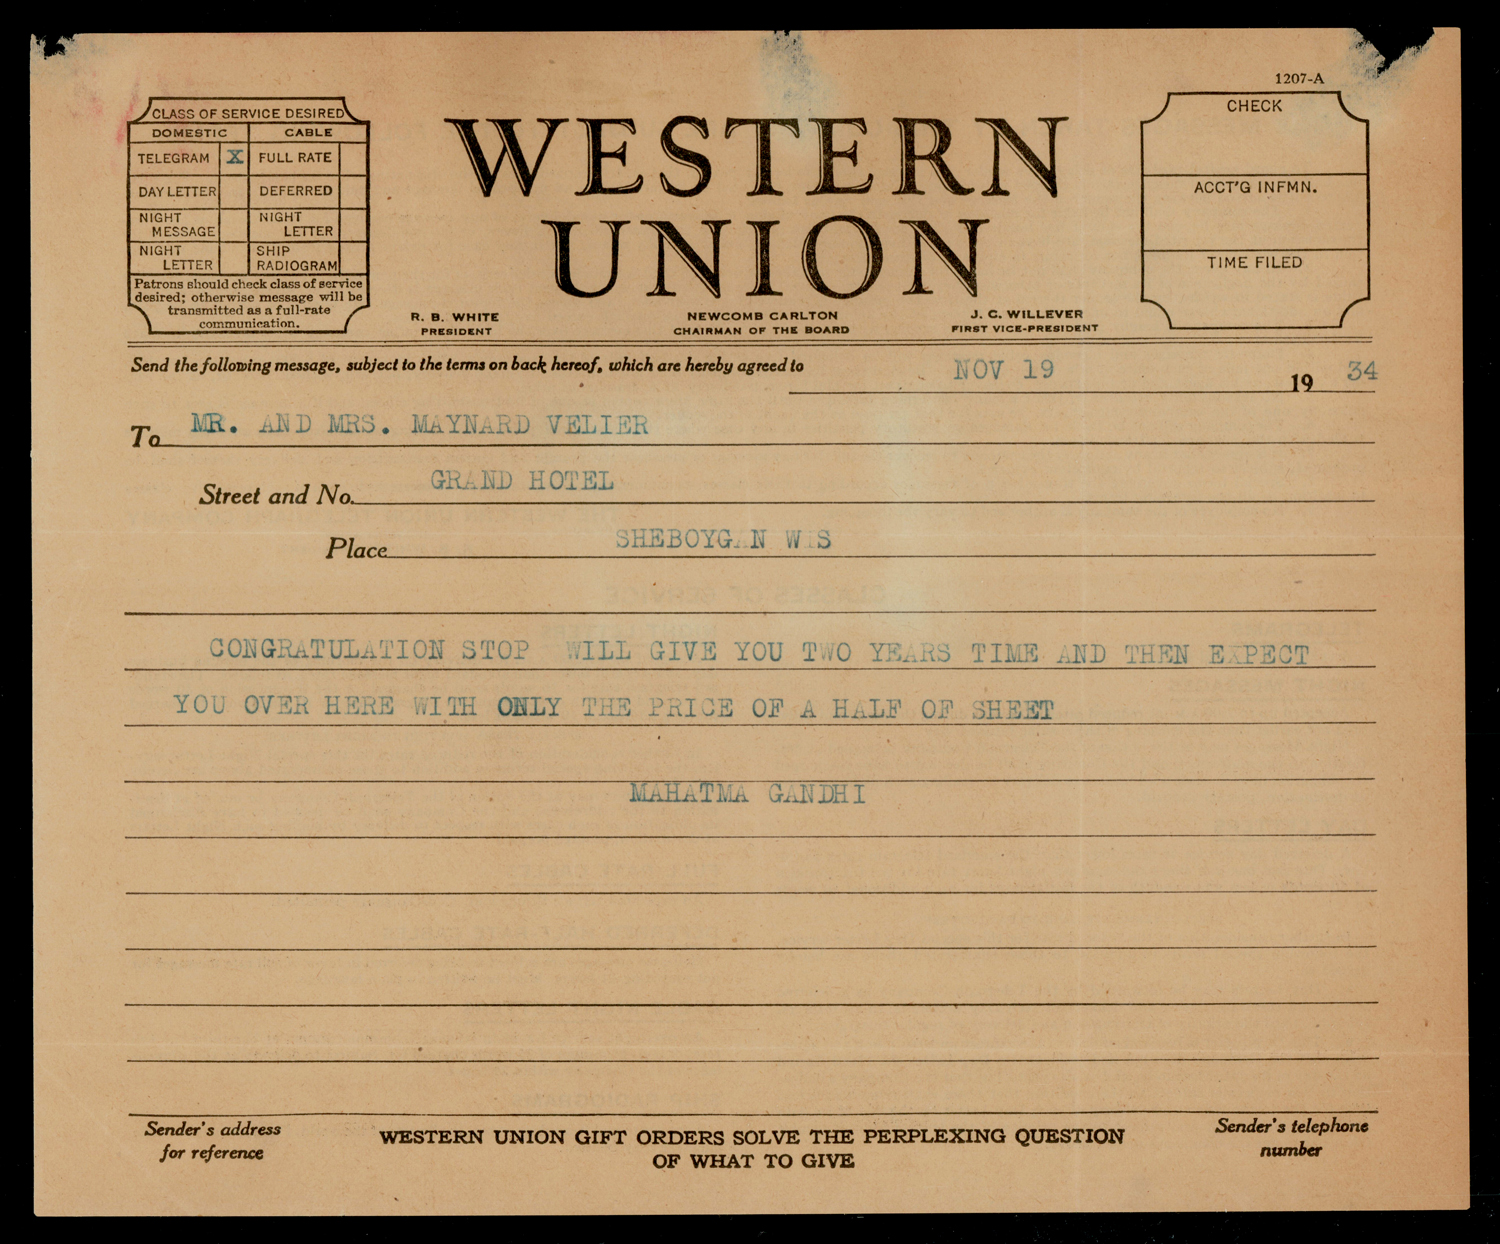 1207-A
CLASS OF SERVICE DESIRED
DOMESTIC CABLE
TELEGRAM X FULL RATE
DAY LETTER DEFERRED
NIGHT MESSAGE NIGHT LETTER
NIGHT LETTER SHIP RADIOGRAM
Patrons should check class of service
desired; otherwise message will be
transmitted as a full-rate
communication.
WESTERN
UNION
R. B. WHITE
PRESIDENT
NEWCOMB CARLTON
CHAIRMAN OF THE BOARD
J. C. WILLEVER
FIRST VICE-PRESIDENT
CHECK
ACCT'G INFMN.
TIME FILED
Send the following message, subject to the terms on back hereof, which are hereby agreed to NOV 19 19 34
To MR. AND MRS. MAYNARD VELIER
Street and No. GRAND HOTEL
Place SHEBOYGAN WIS
CONGRATULATION STOP WILL GIVE YOU TWO YEARS TIME AND THEN EXPECT
YOU OVER HERE WITH ONLY THE PRICE OF A HALF OF SHEET
MAHATMA GANDHI
Sender's address
for reference
WESTERN UNION GIFT ORDERS SOLVE THE PERPLEXING QUESTION
OF WHAT TO GIVE
Sender's telephone
number